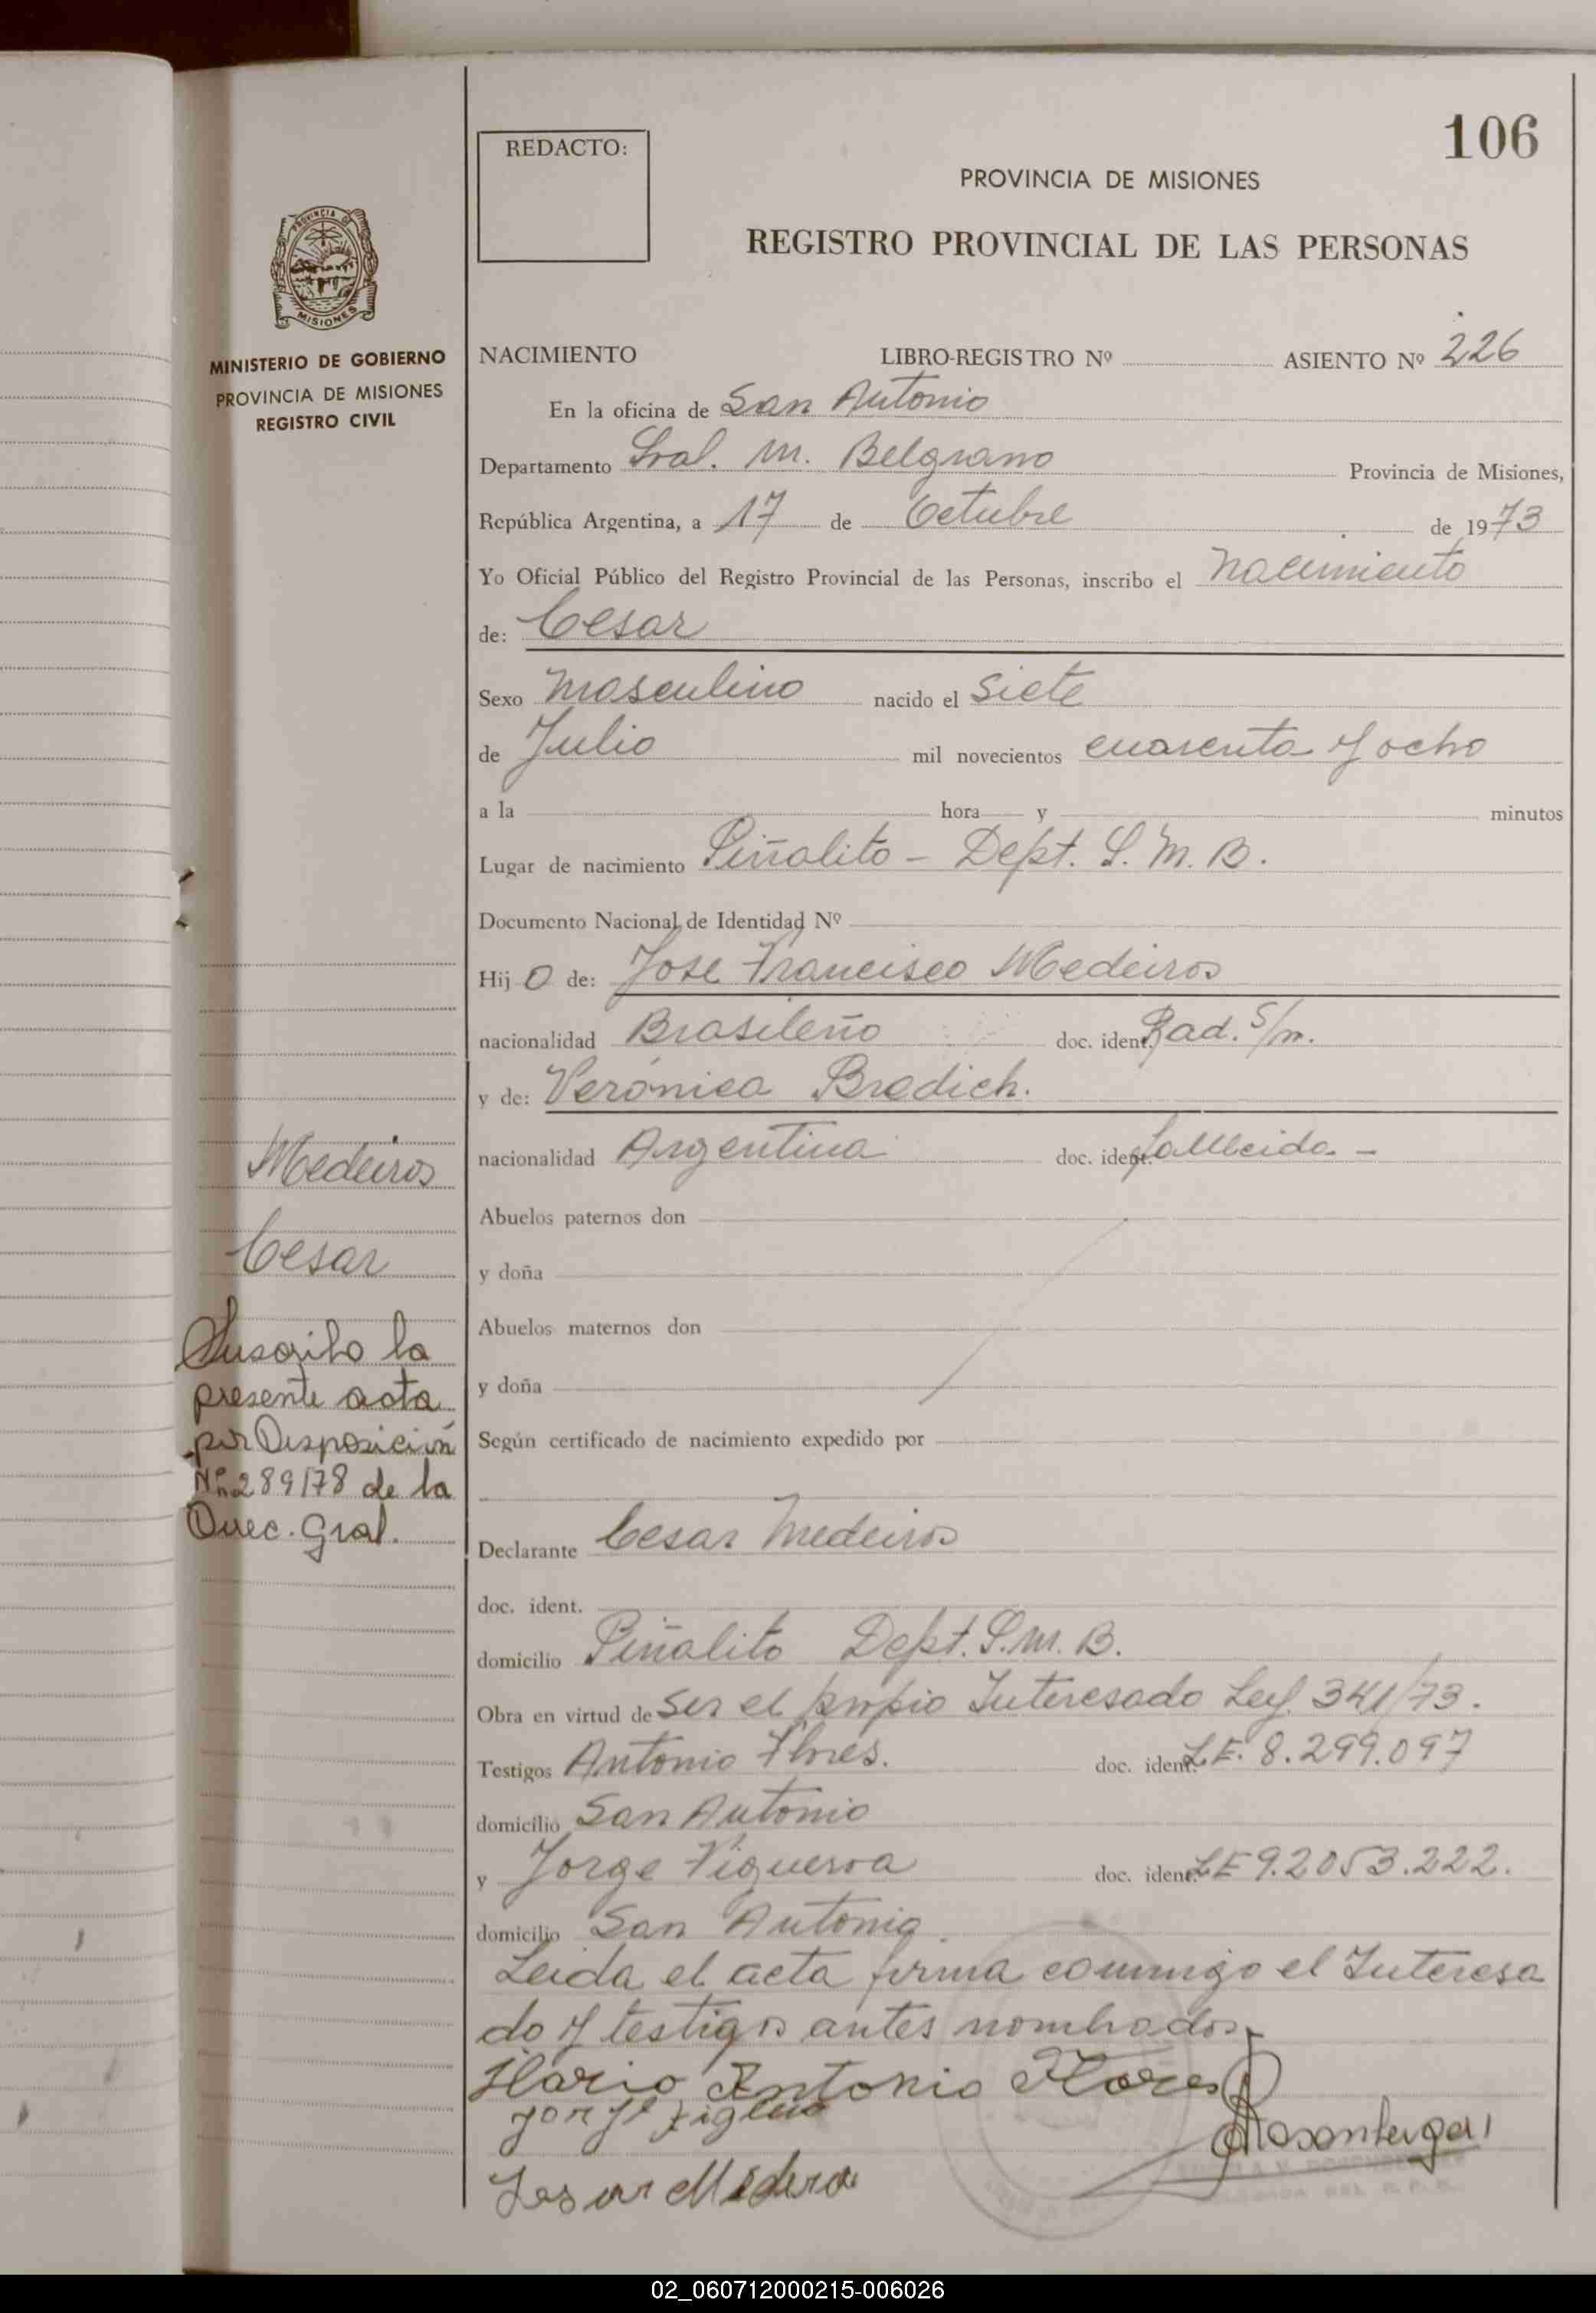 106
REDACTO:
PROVINCIA DE MISIONES
REGISTRO PROVINCIAL DE LAS PERSONAS
PROVINCIA DE
MISIONES
MINISTERIO DE GOBIERNO
PROVINCIA DE MISIONES
REGISTRO CIVIL
NACIMIENTO LIBRO-REGISTRO Nº ASIENTO Nº 226
En la oficina de San Antonio
Departamento Gral. M. Belgrano Provincia de Misiones,
República Argentina, a 17 de Octubre de 1973
Yo Oficial Público del Registro Provincial de las Personas, inscribo el nacimiento
de: Cesar
Sexo Masculino nacido el Siete
de Julio mil novecientos cuarenta y ocho
a la hora y minutos
Lugar de nacimiento Piñalito - Dept. G. M. B.
Documento Nacional de Identidad Nº
Hij O de: Jose Francisco Medeiros
nacionalidad Brasileño doc. ident. Rad. S/m.
y de: Verónica Bredich.
nacionalidad Argentina doc. ident. fallecida. -
Abuelos paternos don
y doña
Abuelos maternos don
y doña
Según certificado de nacimiento expedido por
Medeiros
Cesar
Suscribo la
presente acta
por Disposición
Nº 289/78 de la
Direc. Gral.
Declarante Cesar Medeiros
doc. ident.
domicilio Piñalito Dept. G. M. B.
Obra en virtud de Ser el propio Interesado Ley 341/73.
Testigos Antonio Flores. doc. ident. L.E. 8.299.097
domicilio San Antonio
y Jorge Figueroa doc. ident. LE 9.2053.222.
domicilio San Antonio
Leida el acta firma conmigo el Interesa
do y testigos antes nombrados
Ilario Antonio Flores
Jorge
02_060712000215-006026